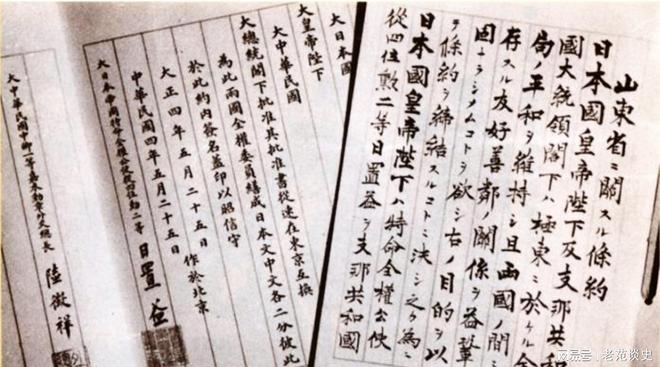 山東省ニ關スル條約
日本國皇帝陛下及支那共和
國大統領閣下ハ極東ニ於ケル全
局ノ平和ヲ維持シ且兩國ノ間ニ
存スル友好善鄰ノ關係ヲ益鞏
固ナラシメムコトヲ欲シ右ノ目的ヲ以
テ條約ヲ締結スルコトニ決シ之ヵ為ニ
日本國皇帝陛下ハ特命全權公使
從四位勳二等日置益ヲ支那共和國
大日本國
大皇帝陛下
大中華民國
大總統閣下批准其批准書從速在東京互換
為此兩國全權委員繕成日本文中文各二分彼此
於此約內簽名蓋印以昭信守
大正四年五月二十五日 作於北京
中華民國四年五月二十五日
大日本帝國特命全權公使從四位勳二等 日置益
大中華民國中卿一等嘉禾勳章外交總長 陸徵祥
老范谈史